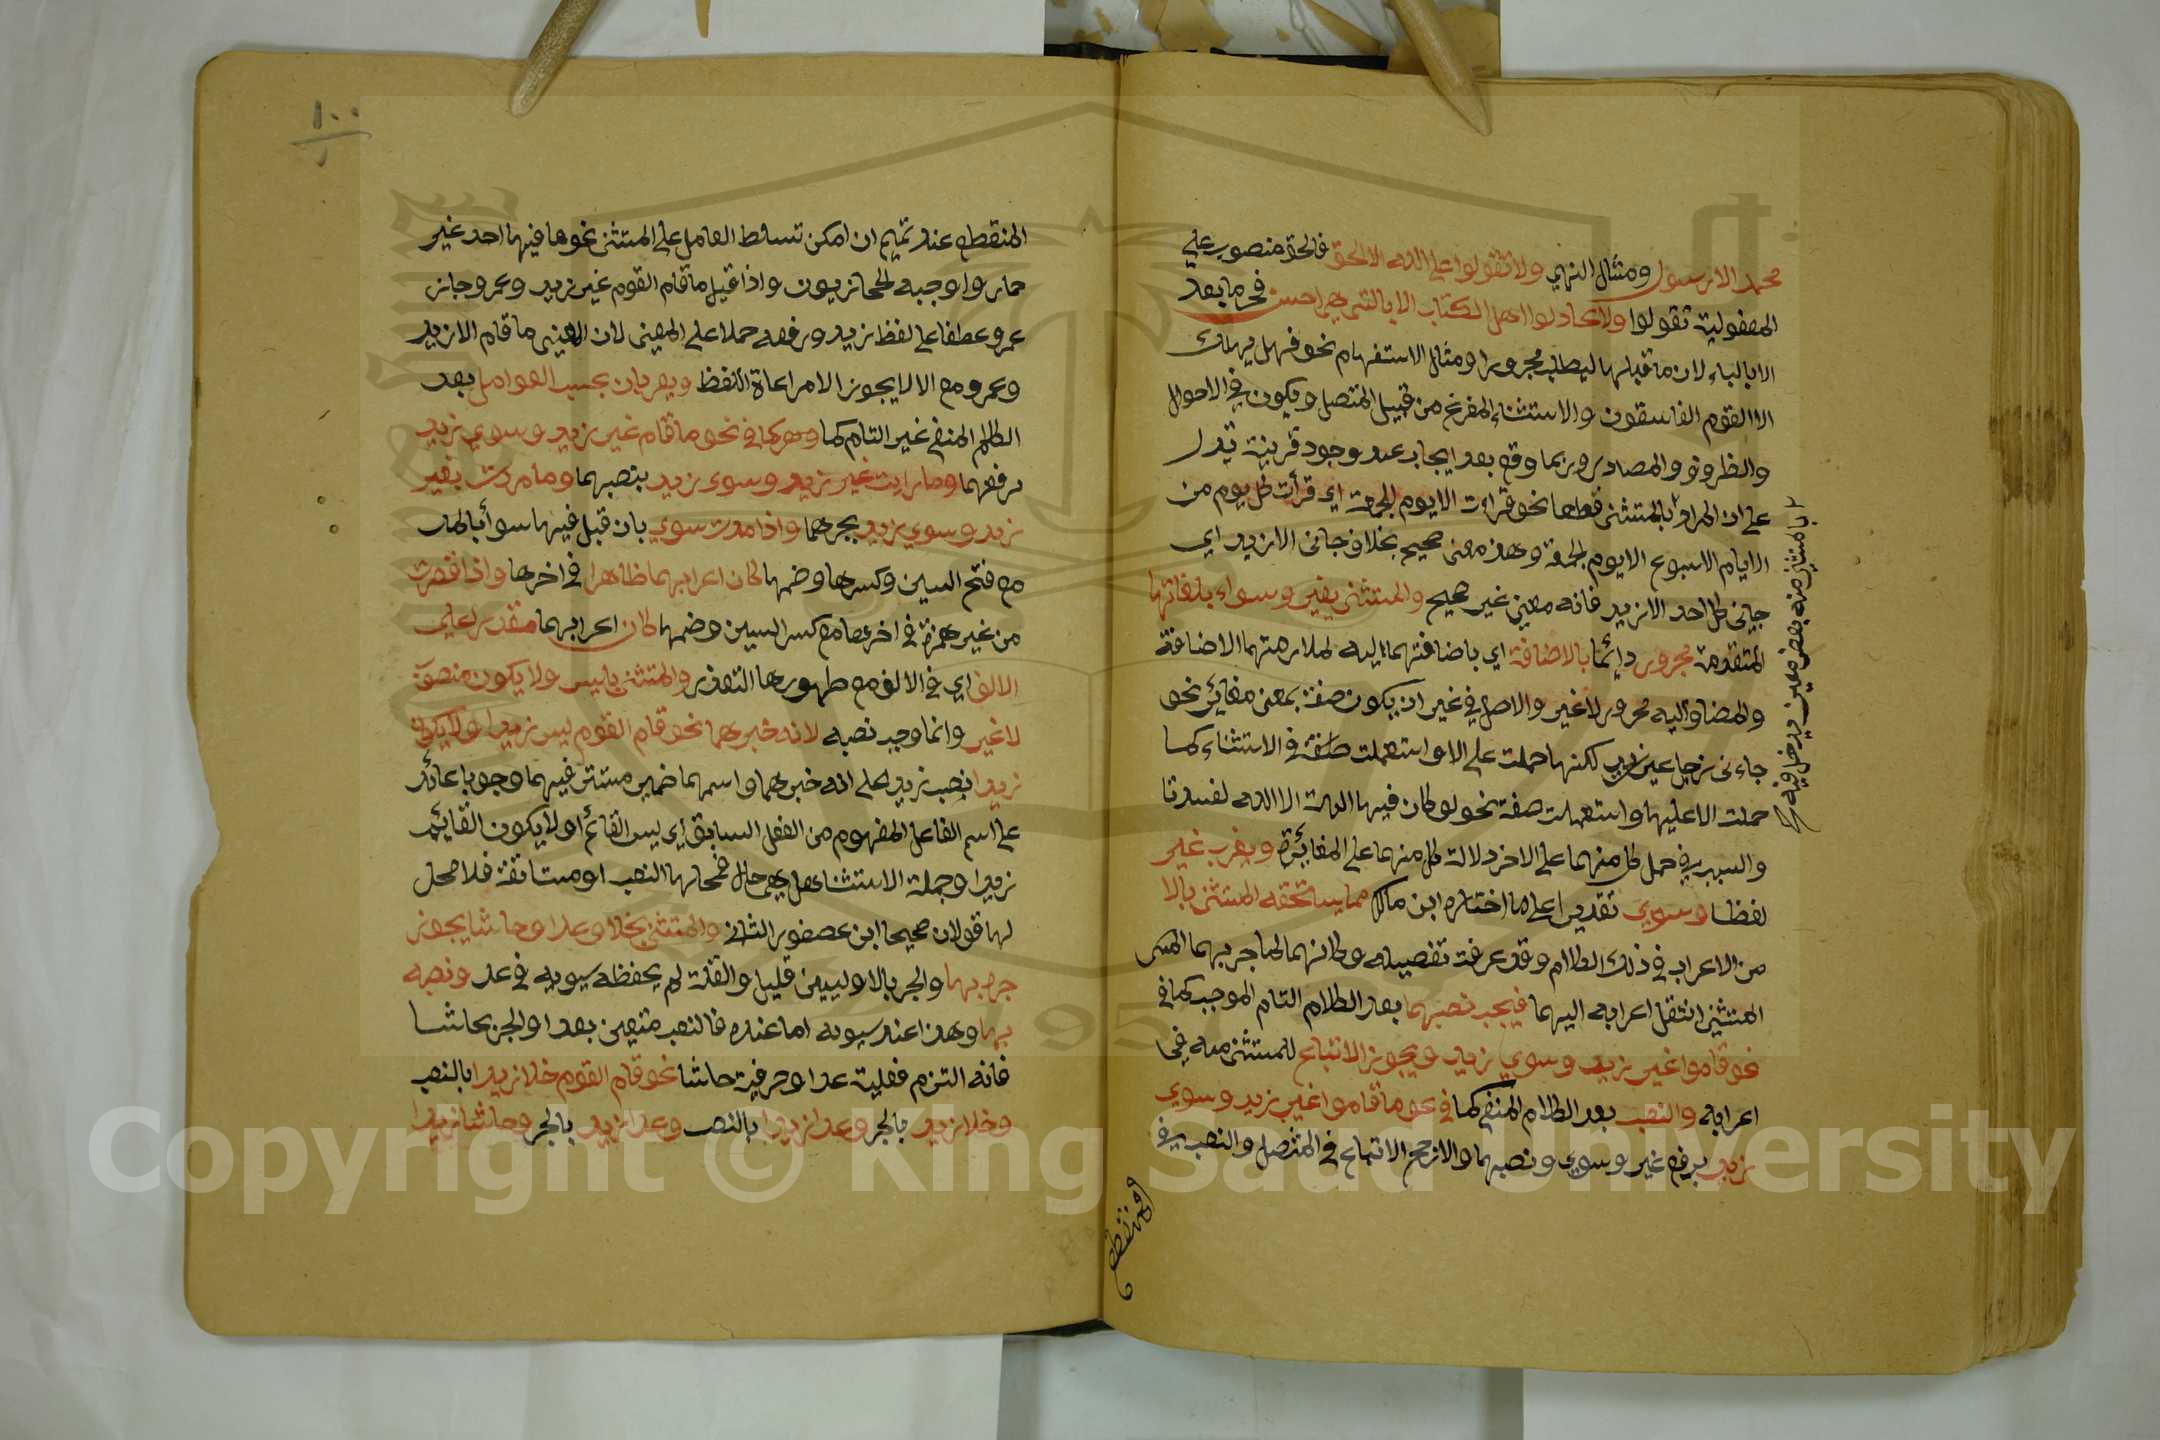 محمد الا رسول ومثال النهي ولا تقولوا على الله الا الحق فالحق منصوب على
المفعولية تقولوا ولا تجادلوا اهل الكتاب الا بالتي هي احسن فجر ما بعد
الا بالباء لان ما قبلها ليطلب مجرورا ومثال الاستفهام نحو فهل يهلك
الا القوم الفاسقون والاستثناء المفرغ من قبيل المتصل ويكون في الاحوال
والظروف والمصادر وربما وقع بعد ايجاب عند وجود قرينة تدل
على ان المراد بالمستثنى قطعها نحو قرات الا يوم الجمعة اي قرأت كل يوم من
الايام الاسبوع الا يوم الجمعة وهذ معنى صحيح بخلاف جانى الا زيد اي
جانى كل احد الا زيد فانه معنى غير صحيح والمستثنى بغير وسواء بلغاتها
المتقدمة مجرور دائما بالاضافة اي باضافتهما اليه لملازمتهما الاضافة
والمضاف اليه مجرور لا غير والاصل في غير ان يكون صفة بمعنى مغائر نحو
جاءنى رجل غير زيد لكنها حملت على الا واستعملت في الاستثناء كما
حملت الا عليها واستعملت صفة نحو لو كان فيهما الهة الا الله لفسدتا
والسبب في حمل كل منهما على الاخر دلالة كل منهما على المغائرة ويعرب غير
لفظا وسوى تقديرا على ما اختاره ابن مالك مما يستحقه المستثنى بالا
من الاعراب في ذلك الكلام وقد عرفت تفصيله وكانهما لما جر بهما
المستثنى انتقل اعرابه اليهما فيجب نصبهما بعد الكلام التام الموجب كما في
نحو قاموا غير زيد وسوي زيد ويجوز الاتباع للمستثنى منه في
اعرابه والنصب بعد الكلام المنفي كما في نحو ما قاموا غير زيد وسوي
زيد برفع غير وسوي ونصبهما والارجح الاتباع في المتصل والنصب في
المنقطع
١٠٠
المنقطع عند تميم ان امكن تسلط العامل على المستثنى نحو ما فيها احد غير
حمار واوجبه الحجازيون واذا قيل ما قام القوم غير زيد وعمرو جاز
عمرو عطفا على لفظ زيد ورفعه حملا على المعنى لان المعنى ما قام الا زيد
وعمرو مع الا لا يجوز الا مراعاة اللفظ ويعربان بحسب العوامل بعد
الكلام المنفي غير التام كما وهو كما في نحو ما قام غير زيد وسوي زيد
برفعهما وما رايت غير زيد وسوى زيد بنصبهما وما مررت بغير
زيد وسوي زيد بجرهما واذا مدت سوي بان قيل فيها سواء بالمد
مع فتح السين وكسرها وضمها كان اعرابهما ظاهرا في اخرها واذا قصرت
من غير همزة في اخرها مع كسر السين وضمها كان اعرابهما مقدر على
الالف اي في الالف مع ظهورها التعذر والمستثنى بليس ولا يكون منصوب
لا غير وانما وجب نصبه لانه خبرهما نحو قام القوم ليس زيدا ولا يكون
زيدا بنصب زيد على انه خبرهما واسمهما ضمير مستتر فيهما وجوبا عائد
على اسم الفاعل المفهوم من الفعل السابق اي ليس القائم او لا يكون القائم
زيدا وجملة الاستثناء هل هي حال فمحلها النصب او مستانفة فلا محل
لها قولان صحيحا ابن عصفور الثانى والمستثنى بخلا وعدا وحاشا يجوز
جره بها والجر بالاوليين قليل والقلة لم يحفظه سيبويه في عد ونصبه
بها وهذا عند سيبويه اما عنده فالنصب متعين بعدا والجر بحاشا
فانه التزم فعلية عدا وحرفية حاشا نحو قام القوم خلا زيدا بالنصب
وخلا زيد بالجر وعدا زيدا بالنصب وعدا زيد بالجر وحاشا زيدا
Copyright © King Saud University
1957